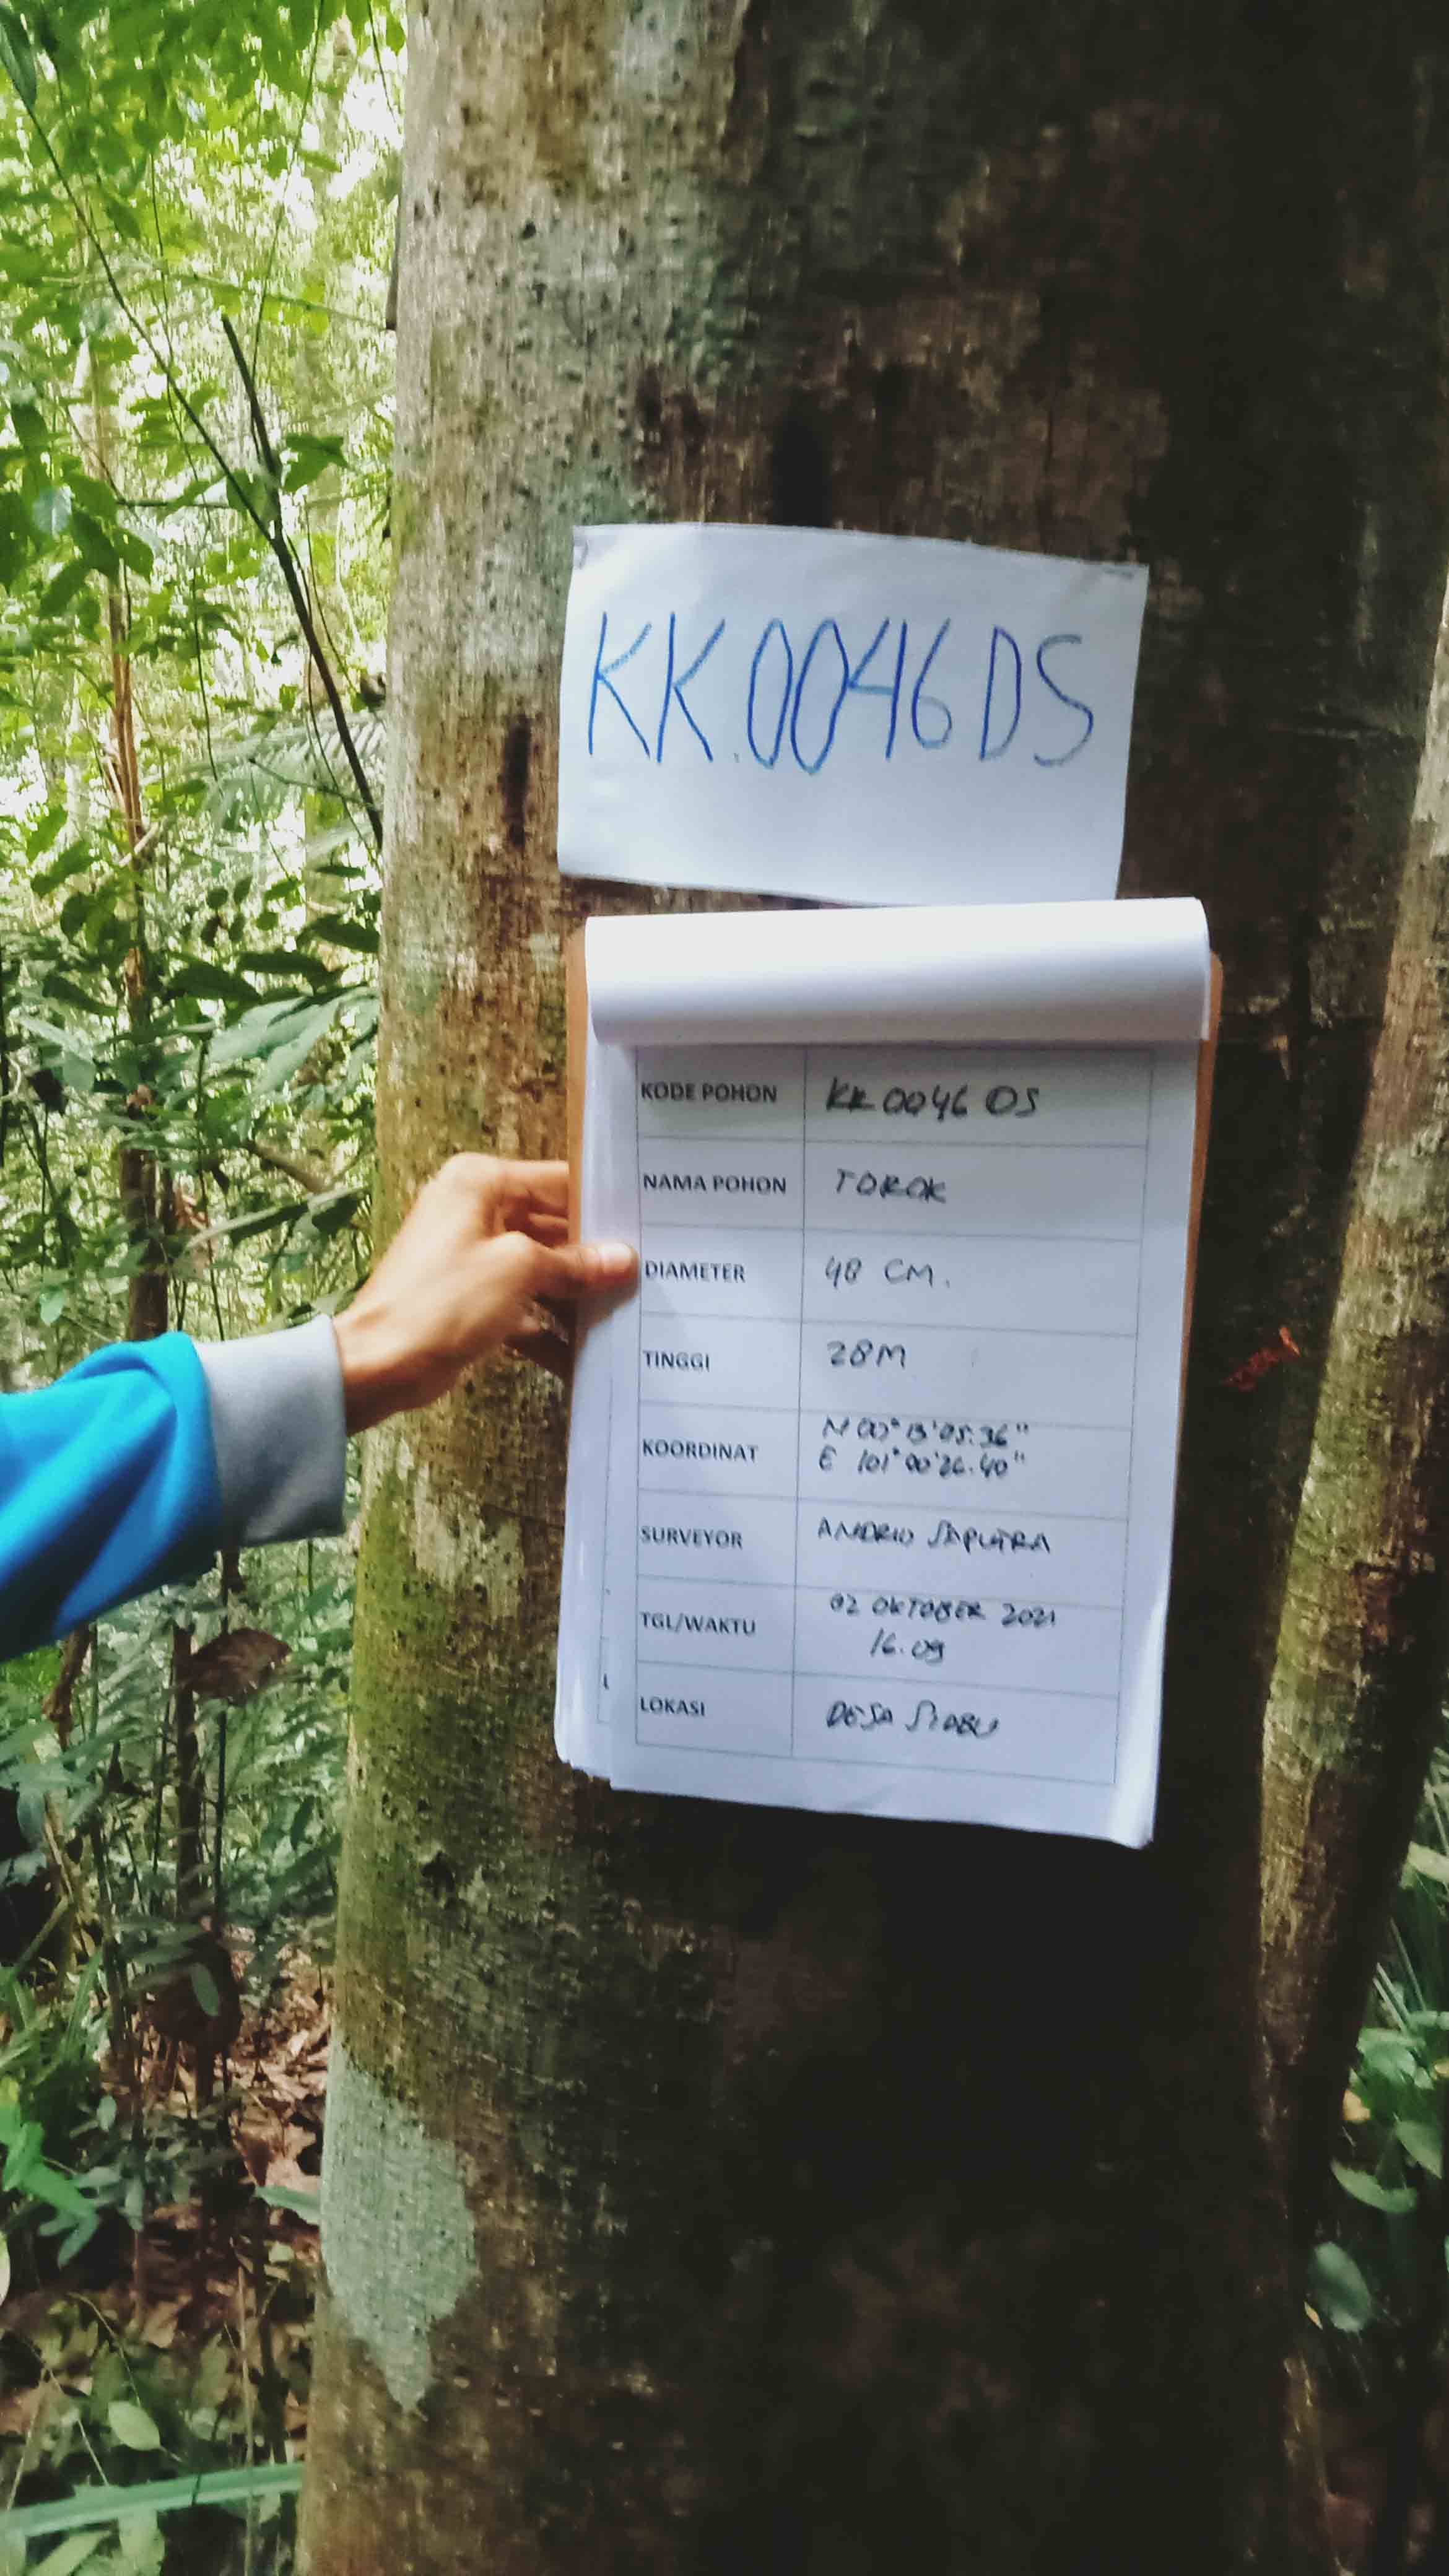 KK.0046 DS
KODE POHON KK 0046 DS
NAMA POHON TOROK
DIAMETER 48 CM.
TINGGI 28M
KOORDINAT N 00° 13' 05.36"
E 101° 00' 26.40"
SURVEYOR ANDRIO SAPUTRA
TGL/WAKTU 02 OKTOBER 2021
16.09
LOKASI DESA SIABU